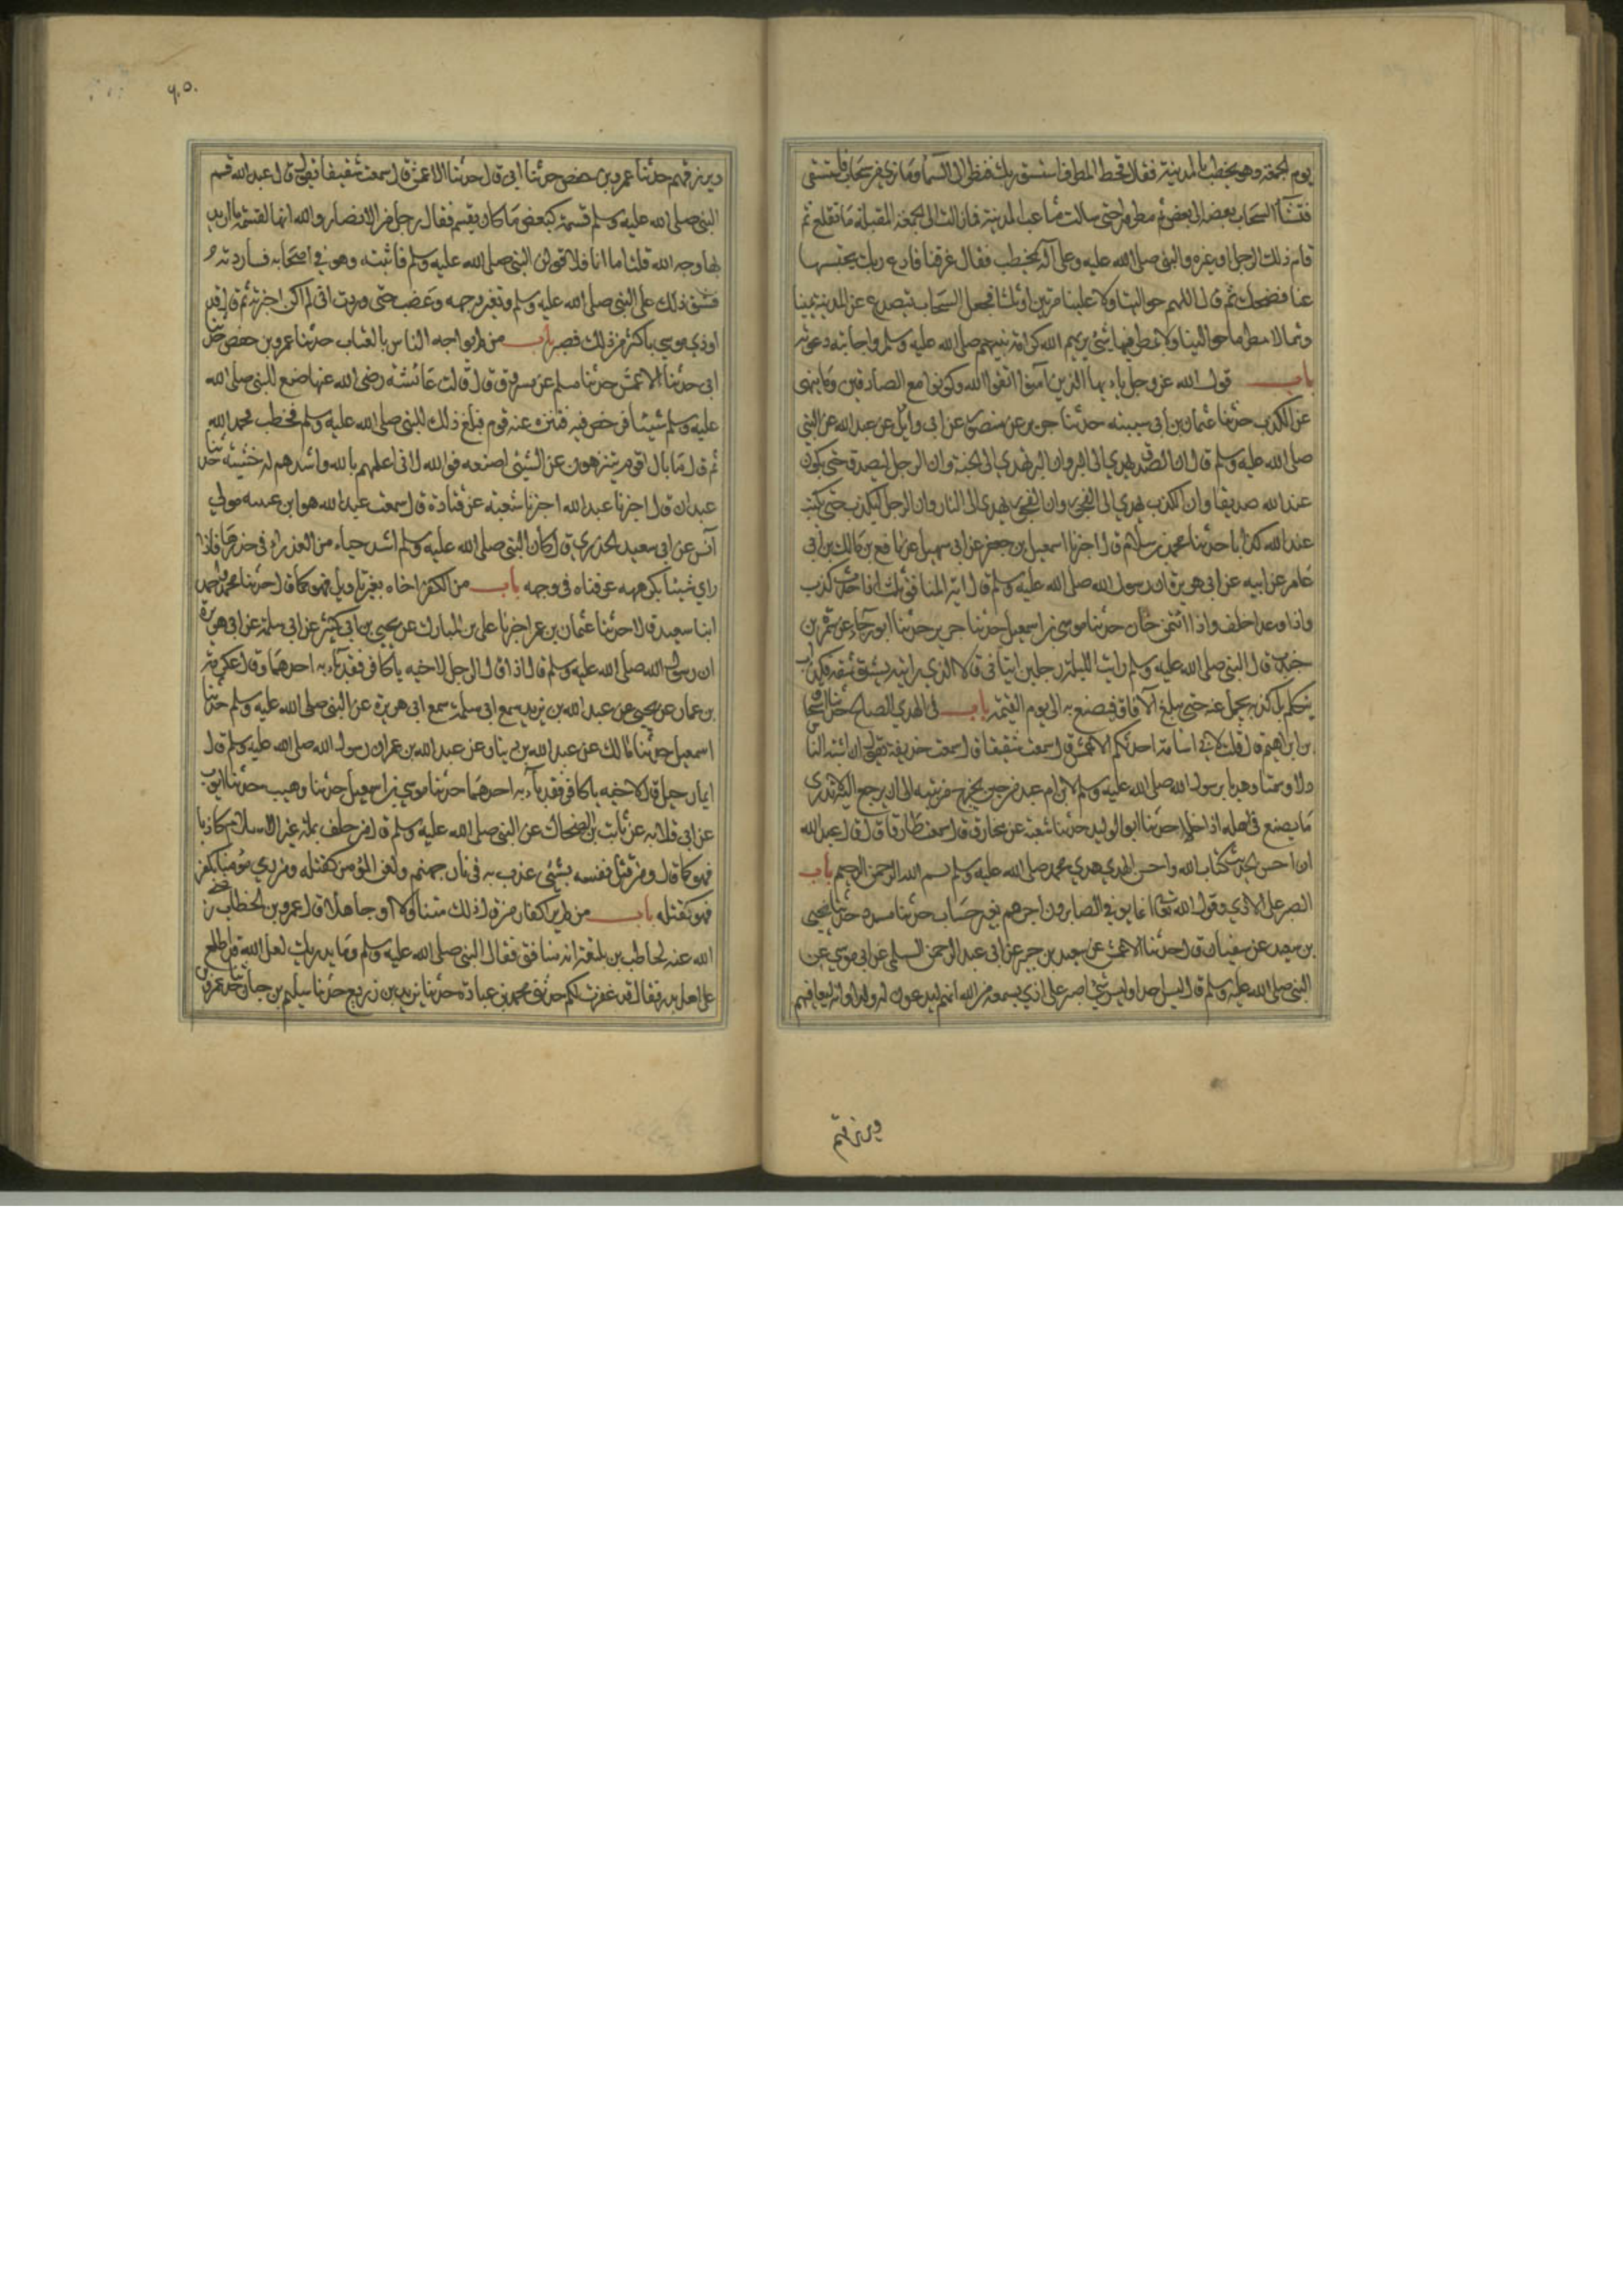 يوم الجمعة وهو يخطب بالمدينة فقال قحط المطر فاستسق ربك فنظر الى السماء وما نرى من سحاب فاستسقى
فنشأ السحاب بعضه الى بعض ثم مطروا حتى سالت مثاعب المدينة فما زالت الى الجمعة المقبلة ما تقلع ثم
قام ذلك الرجل او غيره والنبي صلى الله عليه وعلى آله يخطب فقال غرقنا فادع ربك يحبسها
عنا فضحك ثم قال اللهم حوالينا ولا علينا مرتين او ثلثا فجعل السحاب يتصدع عن المدينة يمينا
وشمالا يمطر ما حوالينا ولا يمطر فيها شئ يريهم الله كرامة نبيهم صلى الله عليه وسلم واجابة دعوته
باب قول الله عز وجل يا ايها الذين آمنوا اتقوا الله وكونوا مع الصادقين وما ينهى
عن الكذب حدثنا عثمان بن ابي شيبة حدثنا جرير عن منصور عن ابي وايل عن عبد الله عن النبي
صلى الله عليه وسلم قال ان الصدق يهدي الى البر وان البر يهدي الى الجنة وان الرجل ليصدق حتى يكون
عند الله صديقا وان الكذب يهدي الى الفجور وان الفجور يهدي الى النار وان الرجل ليكذب حتى يكتب
عند الله كذابا حدثنا محمد بن سلام قال اخبرنا اسمعيل بن جعفر عن ابي سهيل عن نافع بن مالك بن ابي
عامر عن ابيه عن ابي هريرة ان رسول الله صلى الله عليه وسلم قال اية المنافق ثلث اذا حدث كذب
واذا وعد اخلف واذا ائتمن خان حدثنا موسى بن اسمعيل حدثنا جرير حدثنا ابو رجاء عن سمرة بن
جندب قال النبي صلى الله عليه وسلم رايت الليلة رجلين اتياني قالا الذي رايته يشق شدقه فكذاب
يتكلم بالكذبة تحمل عنه حتى تبلغ الآفاق فيصنع به الى يوم القيمة باب في الهدي الصالح حدثنا اسحاق
بن ابراهيم قال قلت لابي اسامة احدثكم الاعمش قال سمعت شقيقا قال سمعت حذيفة يقول ان اشبه الناس
دلا وسمتا وهديا برسول الله صلى الله عليه وسلم لابن ام عبد من حين يخرج من بيته الى ان يرجع اليه لا تدري
ما يصنع في اهله اذا خلا حدثنا ابو الوليد حدثنا شعبة عن مخارق قال سمعت طارقا قال قال عبد الله
ان احسن الحديث كتاب الله واحسن الهدي هدي محمد صلى الله عليه وسلم بسم الله الرحمن الرحيم باب
الصبر على الاذي وقول الله تعالى انما يوفى الصابرون اجرهم بغير حساب حدثنا مسدد حدثنا يحيى
بن سعيد عن سفيان قال حدثنا الاعمش عن سعيد بن جبير عن ابي عبد الرحمن السلمي عن ابي موسي عن
النبي صلى الله عليه وسلم قال ليس احد او ليس شئ اصبر على اذي يسمعه من الله انهم ليدعون له ولدا وانه ليعافيهم
ويرزقهم
٩٠٥
ويرزقهم حدثنا عمرو بن حفص حدثنا ابي قال حدثنا الاعمش قال سمعت شقيقا يقول قال عبد الله قسم
النبي صلى الله عليه وسلم قسمة كبعض ما كان يقسم فقال رجل من الانصار والله انها لقسمة ما اريد
بها وجه الله قلت اما انا فلاقولن للنبي صلى الله عليه وسلم فاتيته وهو في اصحابه فساررته
فشق ذلك على النبي صلى الله عليه وسلم وتغير وجهه وغضب حتى وددت اني لم اكن اخبرته ثم قال قد
اوذي موسي باكثر من ذلك فصبر باب من لم يواجه الناس بالعتاب حدثنا عمرو بن حفص حدثنا
ابي حدثنا الاعمش حدثنا مسلم عن مسروق قال قالت عائشة رضي الله عنها صنع النبي صلى الله
عليه وسلم شيئا فرخص فيه فتنزه عنه قوم فبلغ ذلك النبي صلى الله عليه وسلم فخطب فحمد الله
ثم قال ما بال اقوام يتنزهون عن الشيئ اصنعه فو الله لاني اعلمهم بالله واشدهم له خشية حدثنا
عبدان قال اخبرنا عبد الله اخبرنا شعبة عن قتادة قال سمعت عبد الله هو ابن عتبة مولي
انس عن ابي سعيد الخدري قال كان النبي صلى الله عليه وسلم اشد حياء من العذراء في خدرها فاذا
راي شيئا يكرهه عرفناه في وجهه باب من اكفر اخاه بغير تاويل فهو كما قال حدثنا محمد واحمد
ابنا سعيد قالا حدثنا عثمان بن عمر اخبرنا علي بن المبارك عن يحيى بن ابي كثير عن ابي سلمة عن ابي هريرة
ان رسول الله صلى الله عليه وسلم قال اذا قال الرجل لاخيه يا كافر فقد باء به احدهما وقال عكرمة
بن عمار عن يحيى عن عبد الله بن يزيد سمع ابي سلمة سمع ابي هريرة عن النبي صلى الله عليه وسلم حدثنا
اسمعيل حدثنا مالك عن عبد الله بن دينار عن عبد الله بن عمر ان رسول الله صلى الله عليه وسلم قال
ايما رجل قال لاخيه يا كافر فقد باء به احدهما حدثنا موسي بن اسمعيل حدثنا وهيب حدثنا ايوب
عن ابي قلابه عن ثابت بن الضحاك عن النبي صلى الله عليه وسلم قال من حلف بملة غير الاسلام كاذبا
فهو كما قال ومن قتل نفسه بشئ عذب به في نار جهنم ولعن المؤمن كقتله ومن رمي مؤمنا بكفر
فهو كقتله باب من لم ير اكفار من قال ذلك متناولا او جاهلا قال عمرو بن الخطاب رضي
الله عنه لحاطب بن بلتعة انه منافق فقال النبي صلى الله عليه وسلم وما يدريك لعل الله قد اطلع
على اهل بدر فقال قد غفرت لكم حدثني محمد بن عبادة حدثنا يزيد بن زريع حدثنا سليم بن حيان حدثنا عمرو